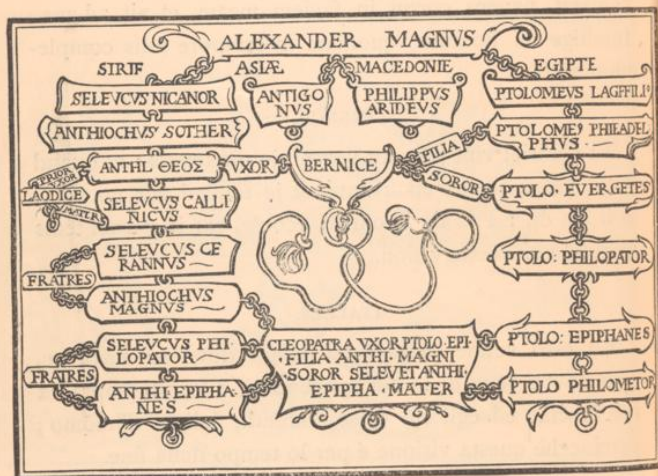 ALEXANDER MAGNVS
SIRIE ASIÆ MACEDONIE EGIPTE
SELEVCVS NICANOR
ANTIGO
NVS
PHILIPPVS
ARIDEVS
PTOLOMEVS LAGFFILI⁹
ANTHIOCHVS SOTHER
PTOLOME⁹ PHILADEL
PHVS
FILIA
ANTHI. ΘΕΟΣ
VXOR
BERNICE
SOROR
PTOLO · EVERGETES
PRIOR
VXOR
LAODICE
MATER
SELEVCVS CALLI
NICVS
SELEVCVS CE
RANNVS
PTOLO: PHILOPATOR
FRATRES
ANTHIOCHVS
MAGNVS
SELEVCVS PHI
LOPATOR
CLEOPATRA VXOR PTOLO · EPI
· FILIA ANTHI · MAGNI
SOROR SELEV ET ANTHI .
EPIPHA · MATER
PTOLO: EPIPHANES
FRATRES
ANTHI · EPIPHA
NES
PTOLO PHILOMETOR